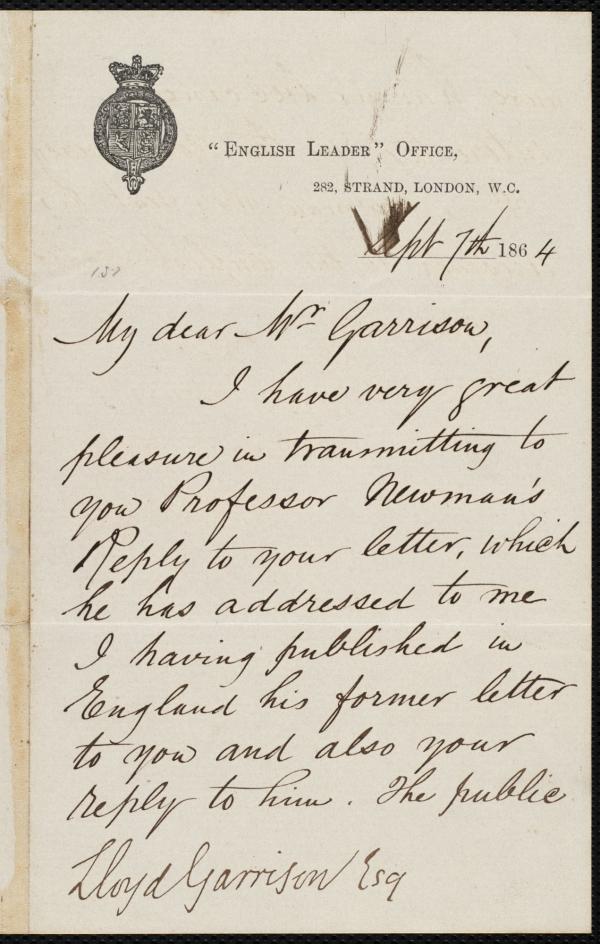 "English Leader" Office,
282, STRAND, LONDON, W.C.
Sept 7th 1864
157
My dear Mr Garrison,
I have very great
pleasure in transmitting to
you Professor Newman's
Reply to your letter, which
he has addressed to me
I having published in
England his former letter
to you and also your
reply to him. The public
Lloyd Garrison Esq